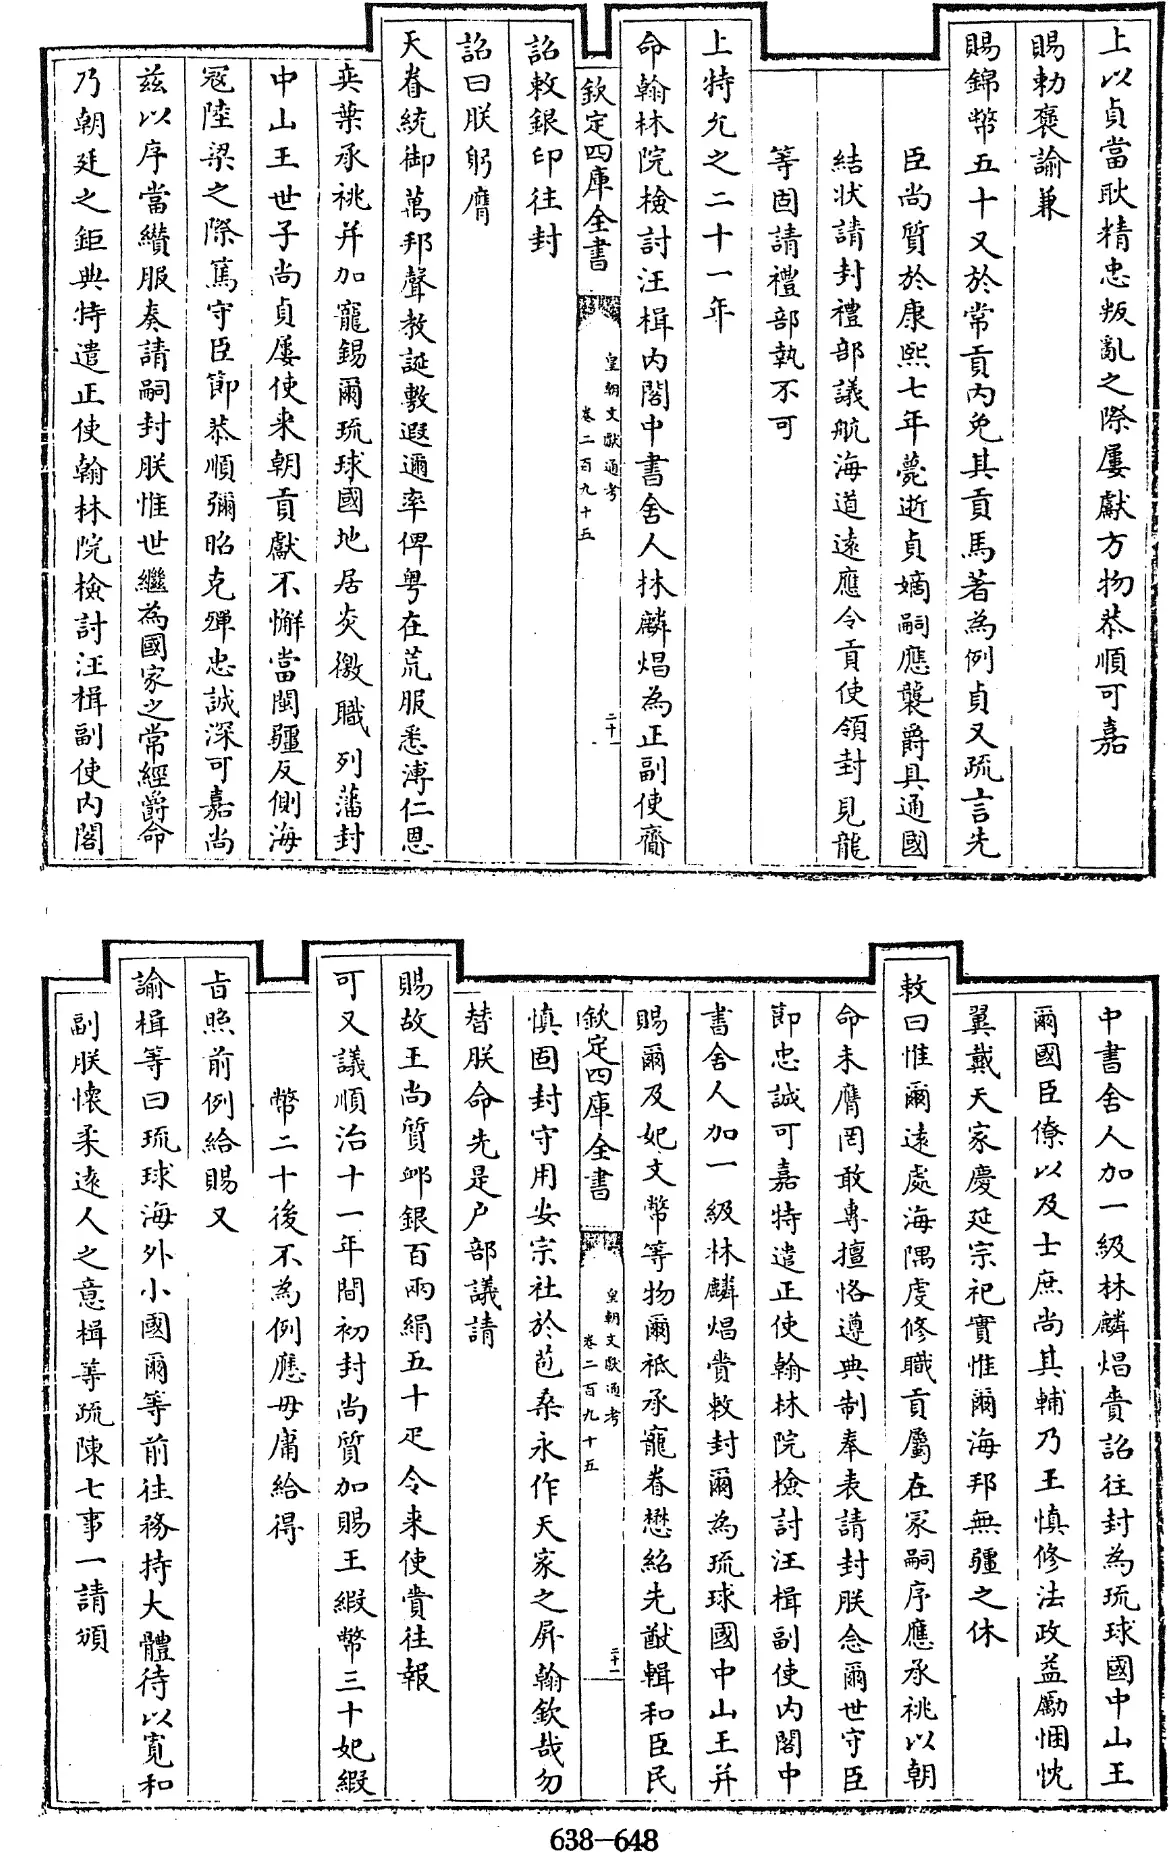 上以貞當耿精忠叛亂之際屢獻方物恭順可嘉
賜勅褒諭兼
賜錦幣五十又於常貢內免其貢馬著為例貞又疏言先
臣尚質於康熙七年薨逝貞嫡嗣應襲爵具通國
結狀請封禮部議航海道遠應令貢使領封見龍
等固請禮部執不可
上特允之二十一年
命翰林院檢討汪楫內閣中書舍人林麟焻為正副使齎
欽定四庫全書
皇朝文獻通考
卷二百九十五
二十一
詔敕銀印往封
詔曰朕躬膺
天眷統御萬邦聲教誕敷遐邇率俾粤在荒服悉溥仁恩
奕葉承祧并加寵錫爾琉球國地居炎徼職列藩封
中山王世子尚貞屢使来朝貢獻不懈當閩疆反側海
冦陸梁之際篤守臣節恭順彌昭克殫忠誠深可嘉尚
兹以序當纘服奏請嗣封朕惟世繼為國家之常經爵命
乃朝廷之鉅典特遣正使翰林院檢討汪楫副使內閣
中書舍人加一級林麟焻賫詔往封為琉球國中山王
爾國臣僚以及士庶尚其輔乃王慎修法政益勵悃忱
翼戴天家慶延宗祀實惟爾海邦無疆之休
敕曰惟爾遠處海隅虔修職貢屬在冡嗣序應承祧以朝
命未膺罔敢專擅恪遵典制奉表請封朕念爾世守臣
節忠誠可嘉特遣正使翰林院檢討汪楫副使內閣中
書舍人加一級林麟焻賫敕封爾為琉球國中山王并
賜爾及妃文幣等物爾祗承寵眷懋紹先猷輯和臣民
欽定四庫全書
皇朝文獻通考
卷二百九十五
二十一
慎固封守用安宗社於苞桑永作天家之屏翰欽哉勿
替朕命先是户部議請
賜故王尚質卹銀百兩絹五十疋令来使賫往報
可又議順治十一年間初封尚質加賜王緞幣三十妃緞
幣二十後不為例應毋庸給得
旨照前例給賜又
諭楫等曰琉球海外小國爾等前往務持大體待以寛和
副朕懷柔遠人之意楫等疏陳七事一請頒
638—648